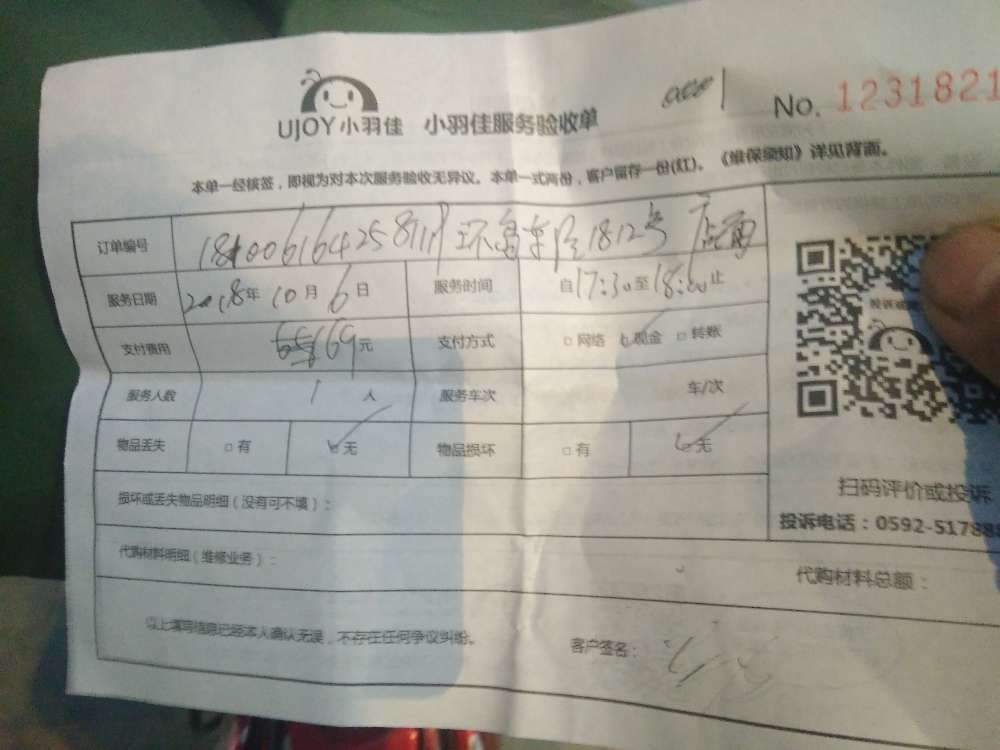 No. 1231821
UJOY小羽佳 小羽佳服务验收单
本单一经核签，即视为对本次服务验收无异议。本单一式两份，客户留存一份(红)。《维保须知》详见背面。
订单编号 环岛东路1812号 店面
服务日期 2018年 10月 6日 服务时间 自17:30至18:00止
支付费用 169元 支付方式 □网络 □现金 □转账
服务人数 1 人 服务车次 车/次
物品丢失 □有 □无 物品损坏 □有 □无
损坏或丢失物品明细（没有可不填）：
扫码评价或投诉
投诉电话：0592-51788
代购材料明细（维修业务）： 代购材料总额：
以上填写信息已经本人确认无误，不存在任何争议纠纷。 客户签名：